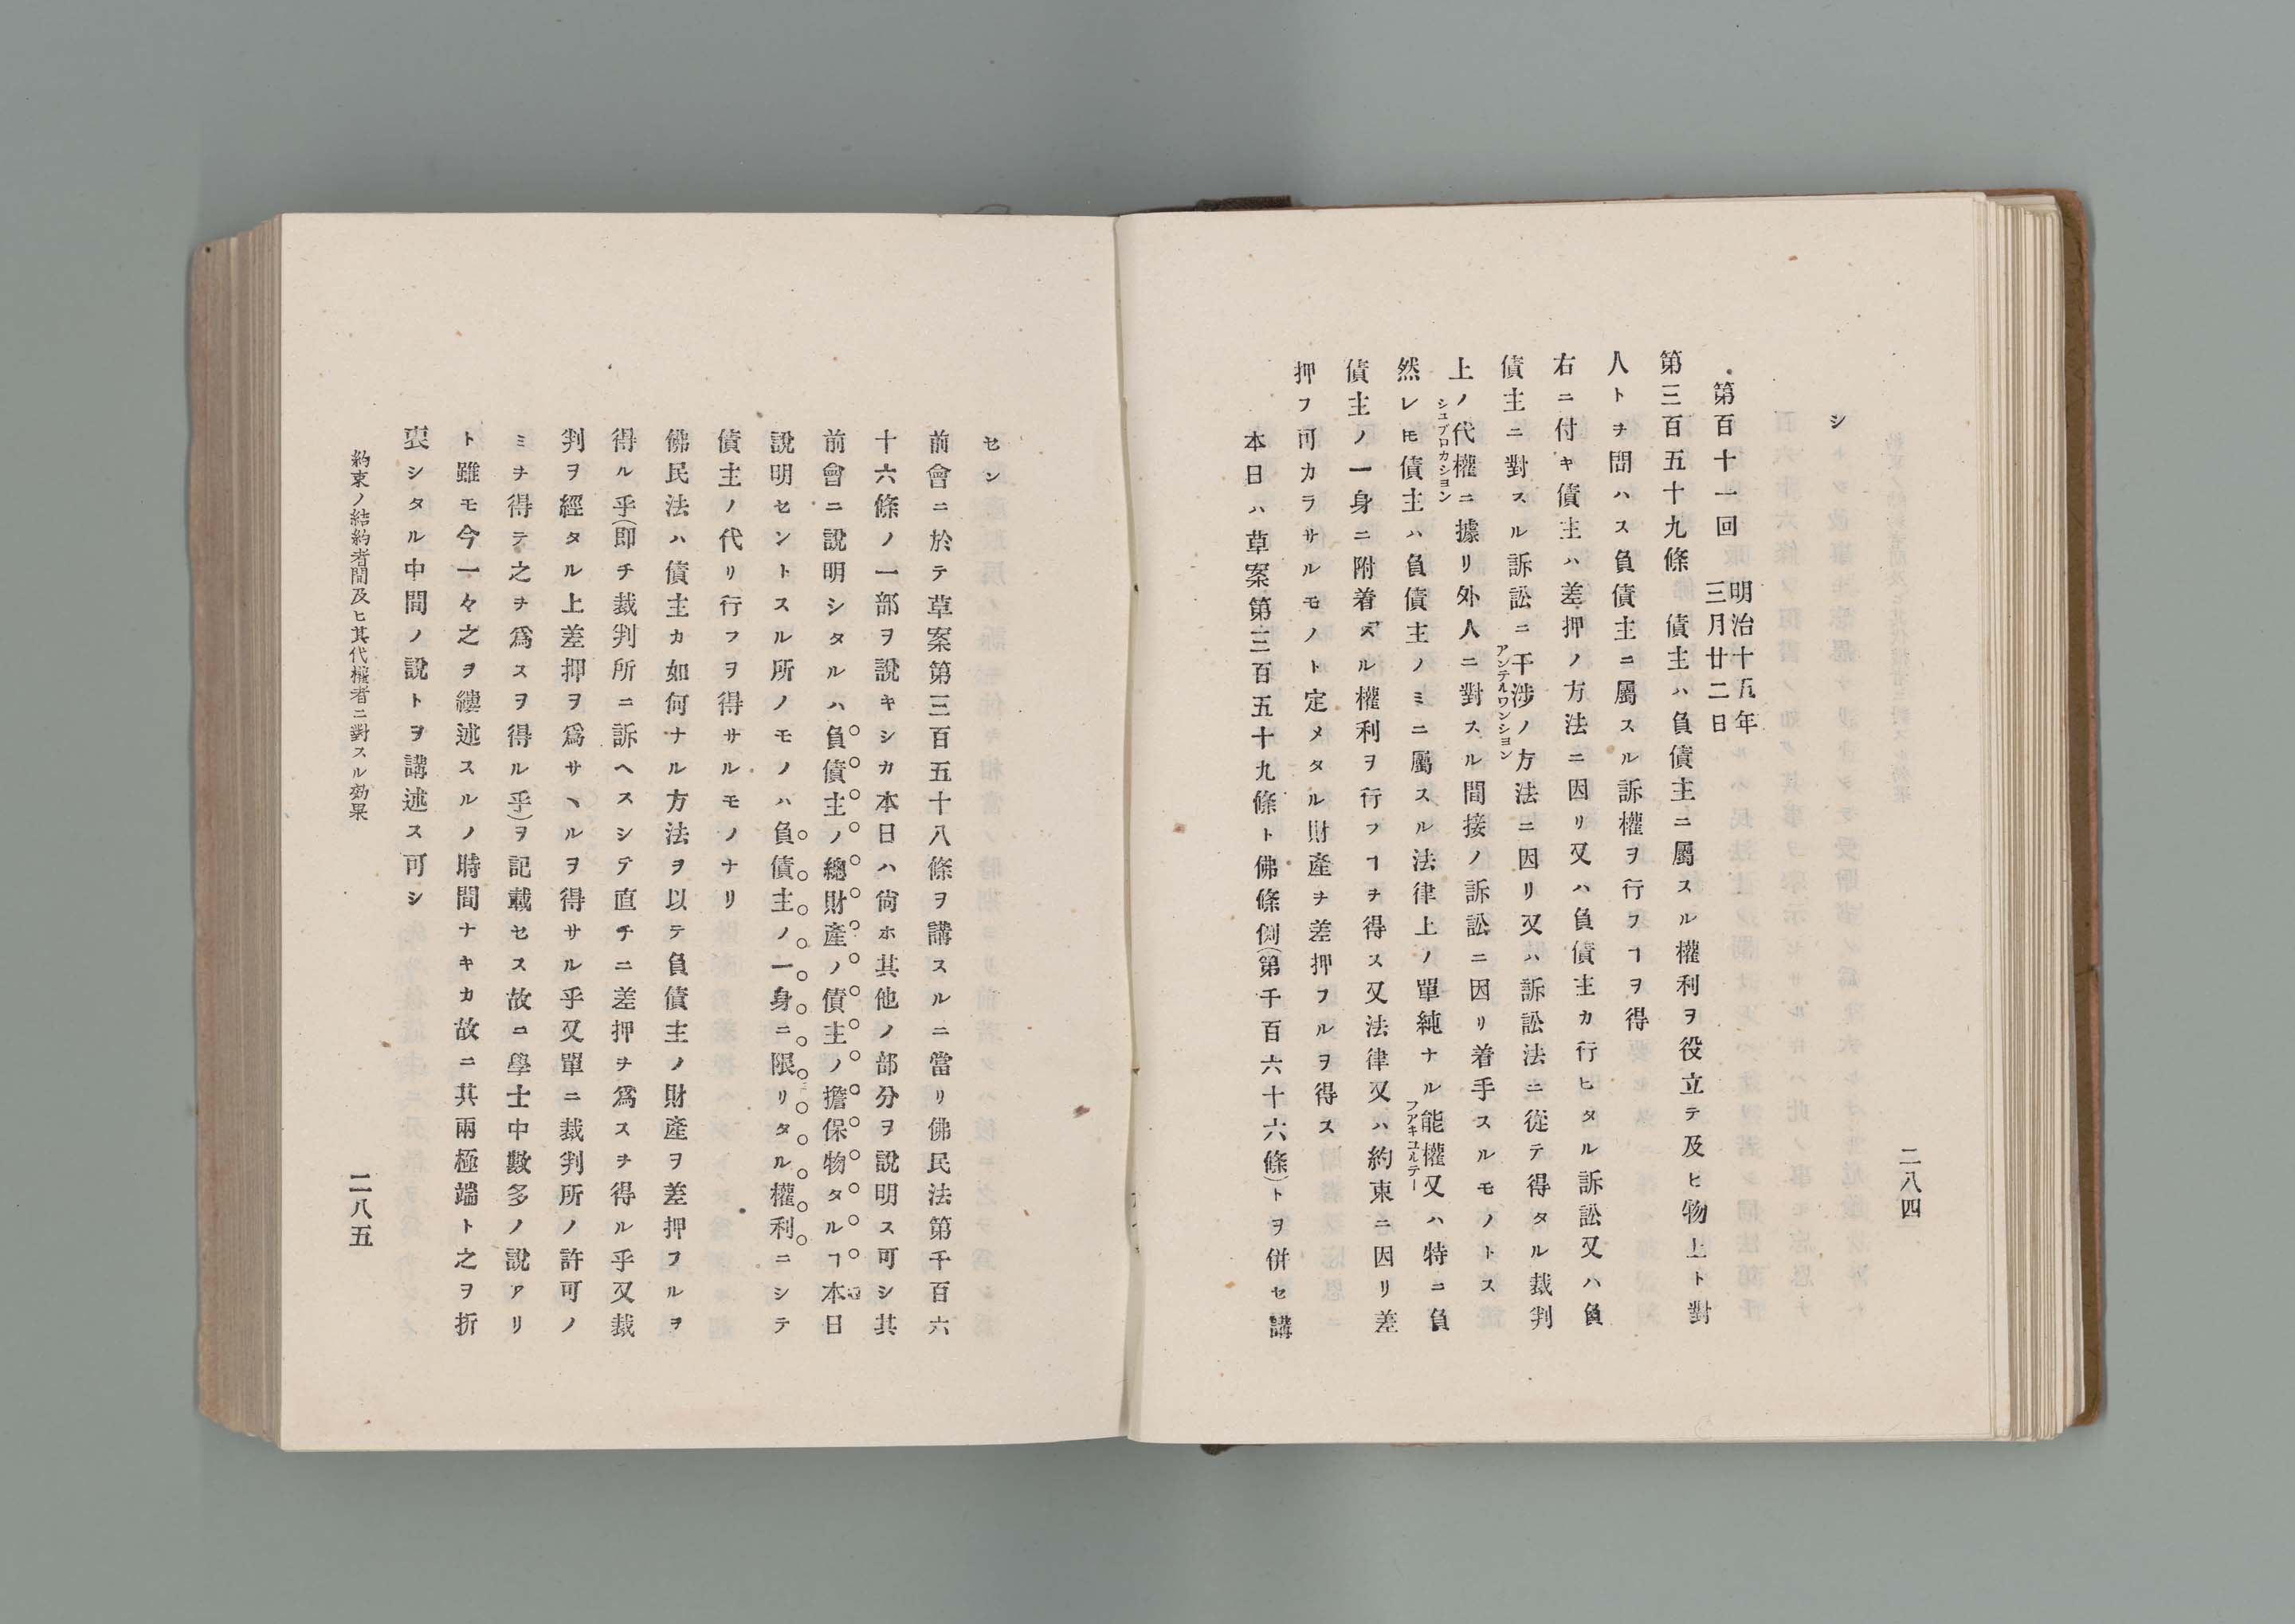 二八四
シ
第百十一回
明治十五年
三月廿二日
第三百五十九條　債主ハ負債主ニ屬スル權利ヲ役立テ及ヒ物上ト對
人トヲ問ハス負債主ニ屬スル訴權ヲ行フヿヲ得
右ニ付キ債主ハ差押ノ方法ニ因リ又ハ負債主カ行ヒタル訴訟又ハ負
債主ニ對スル訴訟ニ干渉ノ方法ニ因リ又ハ訴訟法ニ從テ得タル裁判
アンテルワンション
上ノ代權ニ據リ外人ニ對スル間接ノ訴訟ニ因リ着手スルモノトス
シユブロカション
然レ𪜈債主ハ負債主ノミニ屬スル法律上ノ單純ナル能權又ハ特ニ負
フアキユルテー
債主ノ一身ニ附着スル權利ヲ行フヿヲ得ス又法律又ハ約束ニ因リ差
押フ可カラサルモノト定メタル財產ヲ差押フルヲ得ス
本日ハ草案第三百五十九條ト佛條例(第千百六十六條)トヲ併セ講
セン
前會ニ於テ草案第三百五十八條ヲ講スルニ當リ佛民法第千百六
十六條ノ一部ヲ說キシカ本日ハ尙ホ其他ノ部分ヲ說明ス可シ其
前會ニ說明シタルハ負債主ノ總財產ノ債主ノ擔保物タルヿ本日
說明セントスル所ノモノハ負債主ノ一身ニ限リタル權利ニシテ
債主ノ代リ行フヲ得サルモノナリ
佛民法ハ債主カ如何ナル方法ヲ以テ負債主ノ財產ヲ差押フルヲ
得ル乎(即チ裁判所ニ訴ヘスシテ直チニ差押ヲ爲スヲ得ル乎又裁
判ヲ經タル上差押ヲ爲サヽルヲ得サル乎又單ニ裁判所ノ許可ノ
ミヲ得テ之ヲ爲スヲ得ル乎)ヲ記載セス故ニ學士中數多ノ說アリ
ト雖モ今一々之ヲ縷述スルノ時間ナキカ故ニ其兩極端ト之ヲ折
衷シタル中間ノ說トヲ講述ス可シ
約束ノ結約者間及ヒ其代權者ニ對スル効果
二八五